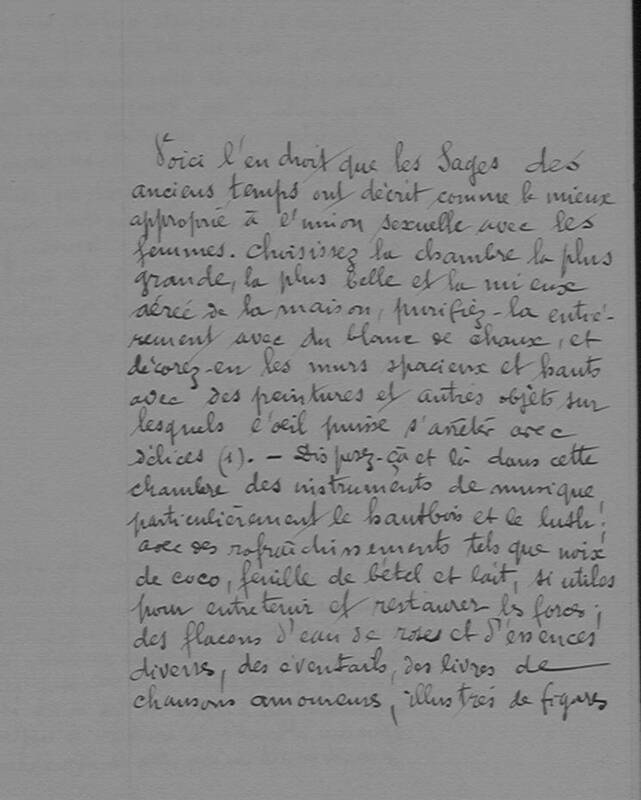 Voici l'endroit que les Sages des
anciens temps ont décrit comme le mieux
approprié à l'union sexuelle avec les
femmes. Choisissez la chambre la plus
grande, la plus belle et la mieux
aérée de la maison, purifiez-la entiè-
rement avec du blanc de chaux, et
décorez-en les murs spacieux et hauts
avec des peintures et autres objets sur
lesquels l'oeil puisse s'arrêter avec
délices (1). — Disposez çà et là dans cette
chambre des instruments de musique,
particulièrement le hautbois et le luth;
avec des rafraîchissements tels que noix
de coco, feuille de bétel et lait, si utiles
pour entretenir et restaurer les forces;
des flacons d'eau de roses et d'essences
diverses, des éventails, des livres de
chansons amoureuses, illustrés de figures